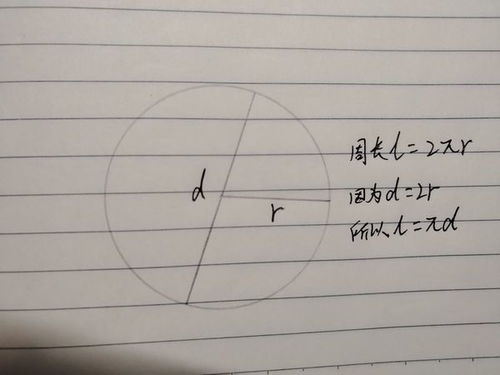 d
r
周长l=2πr
因为d=2r
所以l=πd